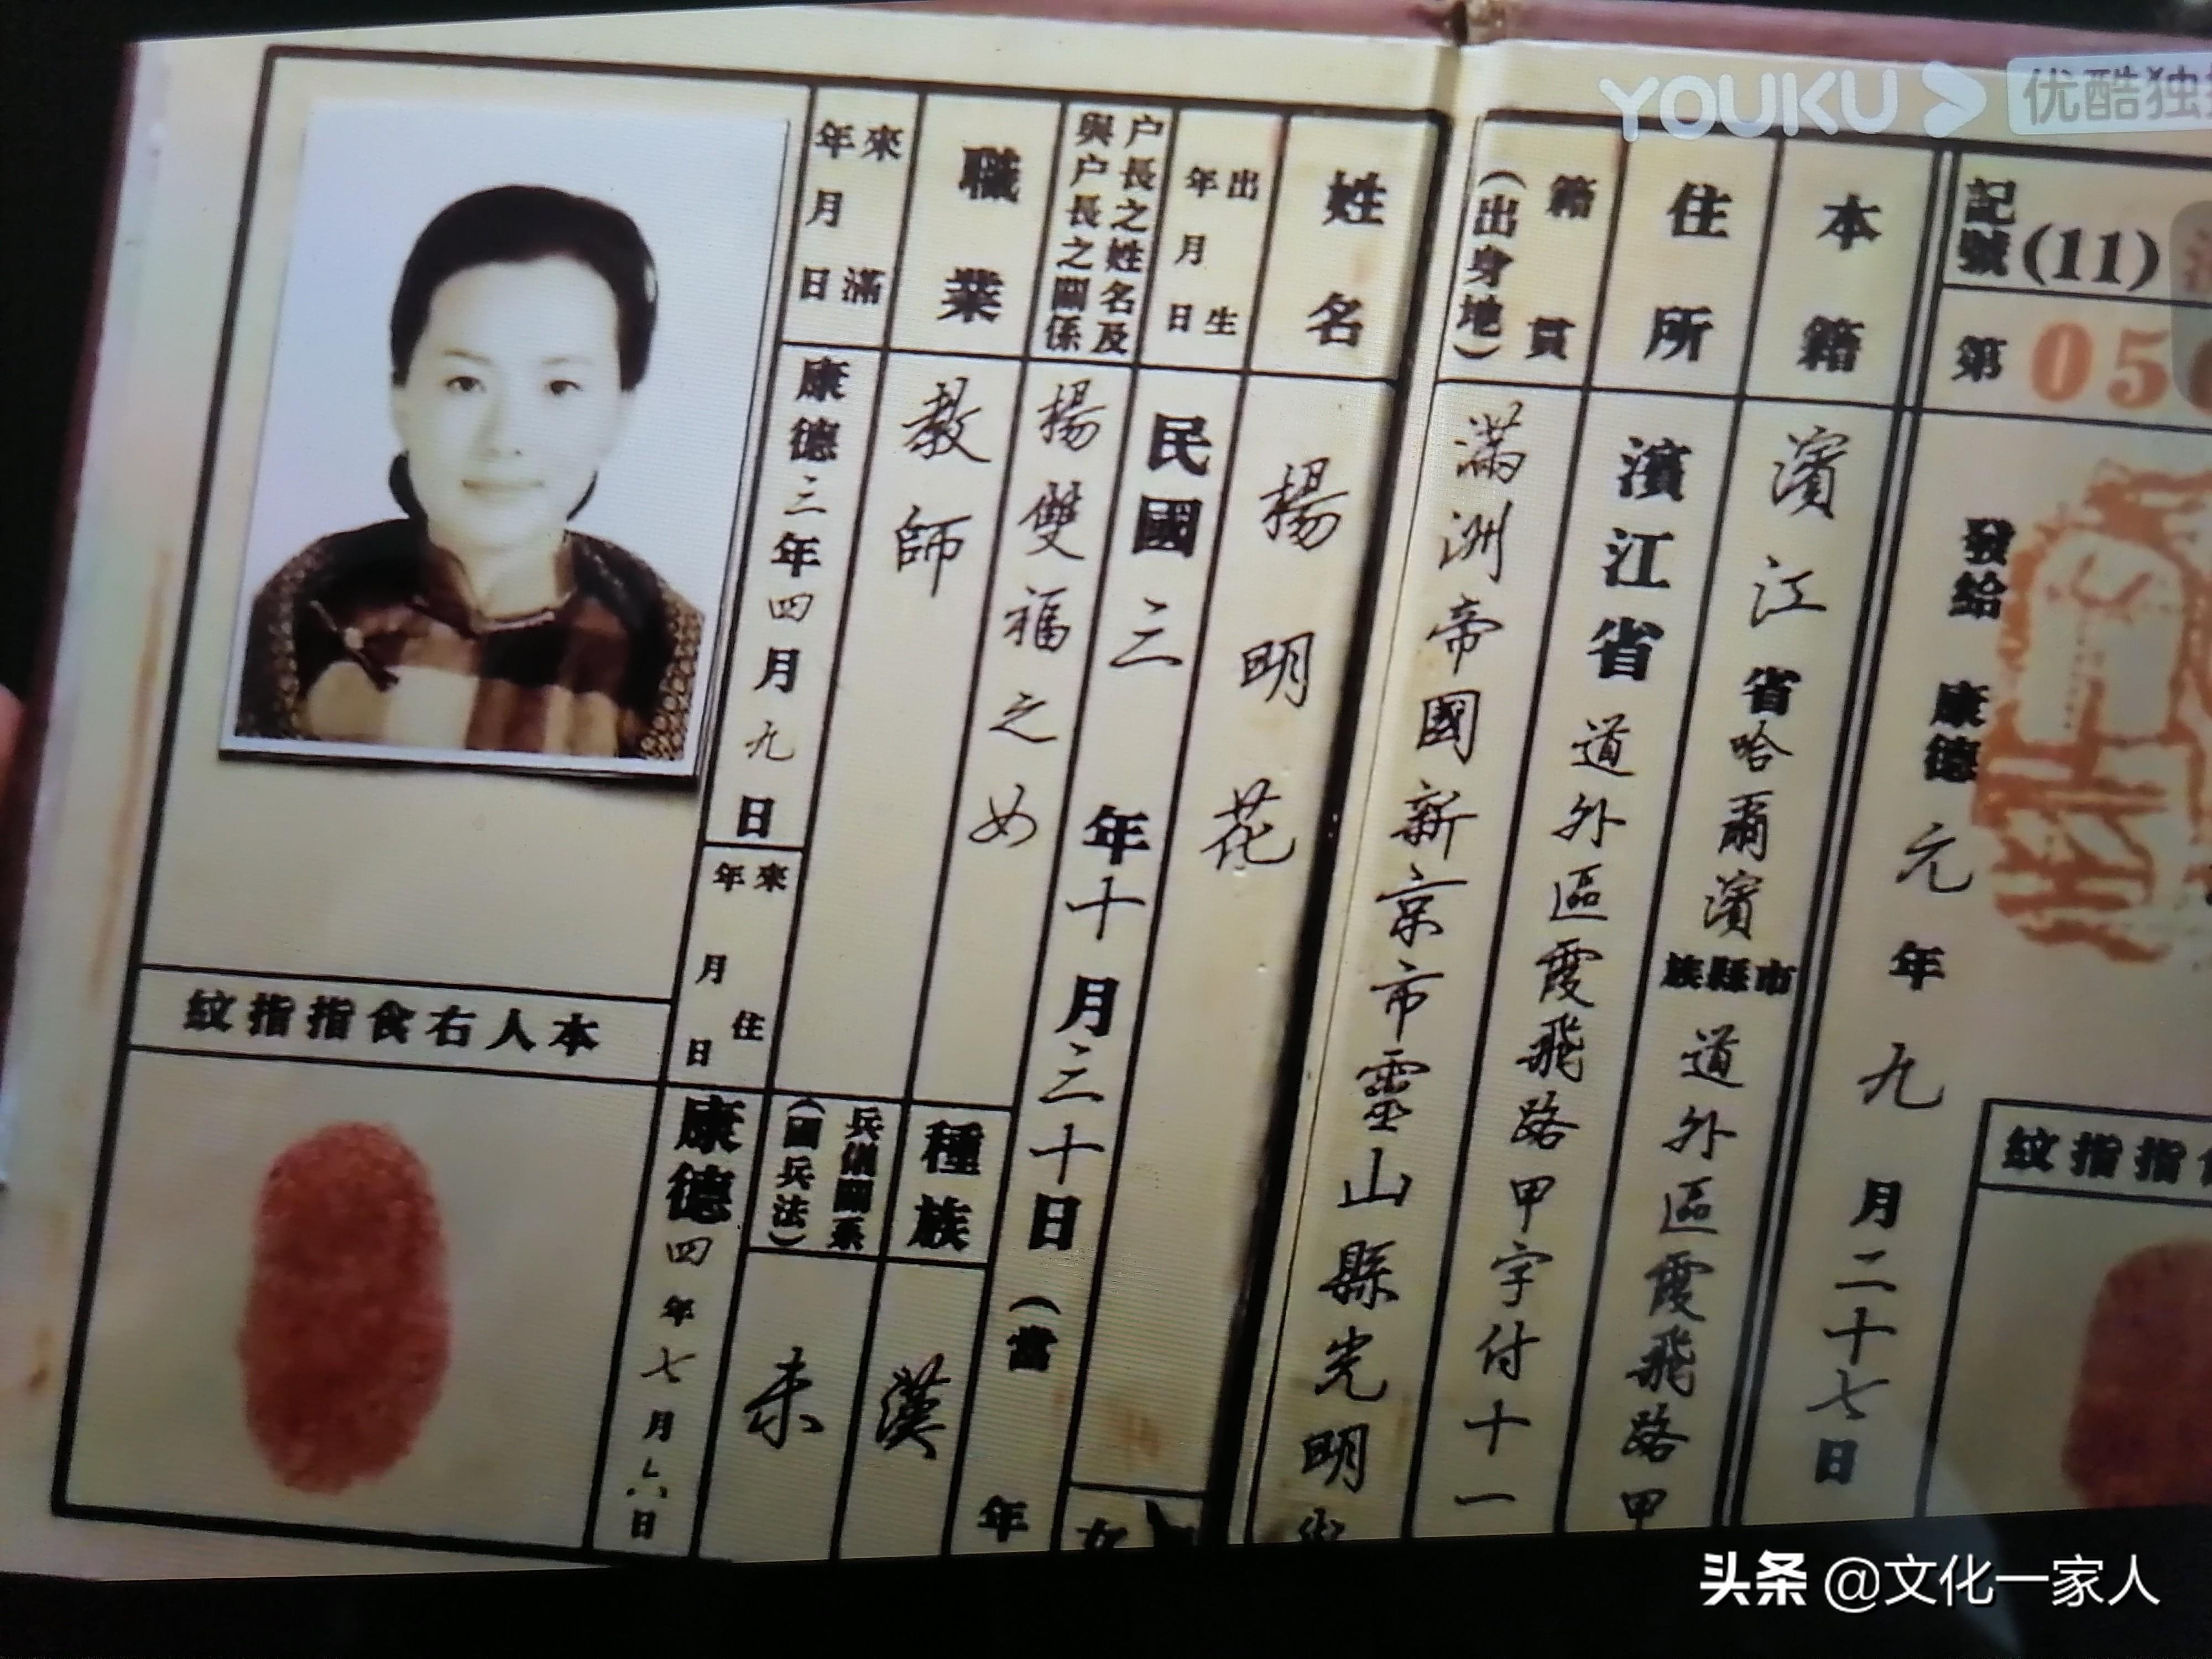 YOUKU 优酷独
記號 (11)
第 05
發給 康德元年九月二十七日
紋指指
本籍
濱江省哈爾濱市縣旗道外區霞飛路甲
住所
濱江省道外區霞飛路甲字付十一
籍貫
(出身地)
滿洲帝國新京市靈山縣光明
姓名
楊明花
出生
年月日
民國三年十月三十日(當 年
女
户長之姓名及
與户長之關係
楊雙福之女
職業
教師
種族
漢
兵備關系
(國兵法)
未
來滿
年月日
康德三年四月九日
來住
年月日
康德四年七月六日
紋指指食右人本
头条 @文化一家人